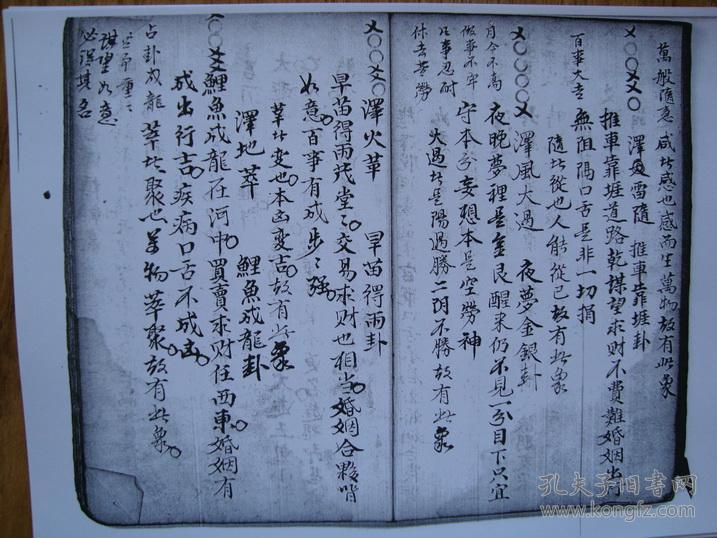 萬般隨意 咸者感也感而生萬物故有此象
乂〇〇乂乂〇
澤雷隨 推車靠堐卦
推車靠堐道路乾 謀望求财不費難 婚姻出行
百事大吉
無阻隔 口舌是非一切捐
隨者從也人能從己故有此象
乂〇〇〇〇乂
澤風大過 夜夢金銀卦
月令不高
做事不牢
凡事忍耐
休去苦勞
夜晚夢裡是金艮 醒来仍不見一分 目下只宜
守本分 妄想本是空勞神
大過者是陽過勝二阴不勝故有此象
乂〇〇〇乂〇
澤火革 旱苗得雨卦
旱苗得雨茂堂〻 交易求财也相当 婚姻合夥皆
如意 百事有成步〻强
革者变也本凶变吉故有此象
乂〇〇乂乂
澤地萃 鯉魚成龍卦
占卦成龍
謀望如意
必得其名
鯉魚成龍在河中 買賣求财任西東 婚姻有
成出行吉 疾病口舌不成凶
萃者聚也万物萃聚故有此象
孔夫子旧书网
www.kongfz.com